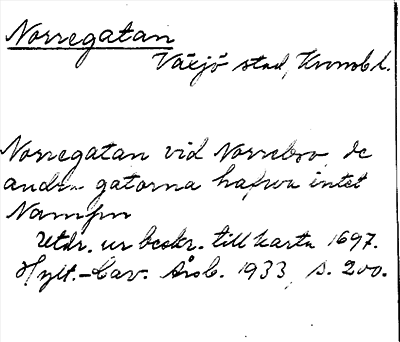 Norregatan
Växjö stad, Kronob. l.
Norregatan vid Norrebro, de
andra gatorna hafwa intet
Nampn
Utdr. ur beskr. till karta 1697.
Hylt.-Cav. Årsb. 1933, s. 200.